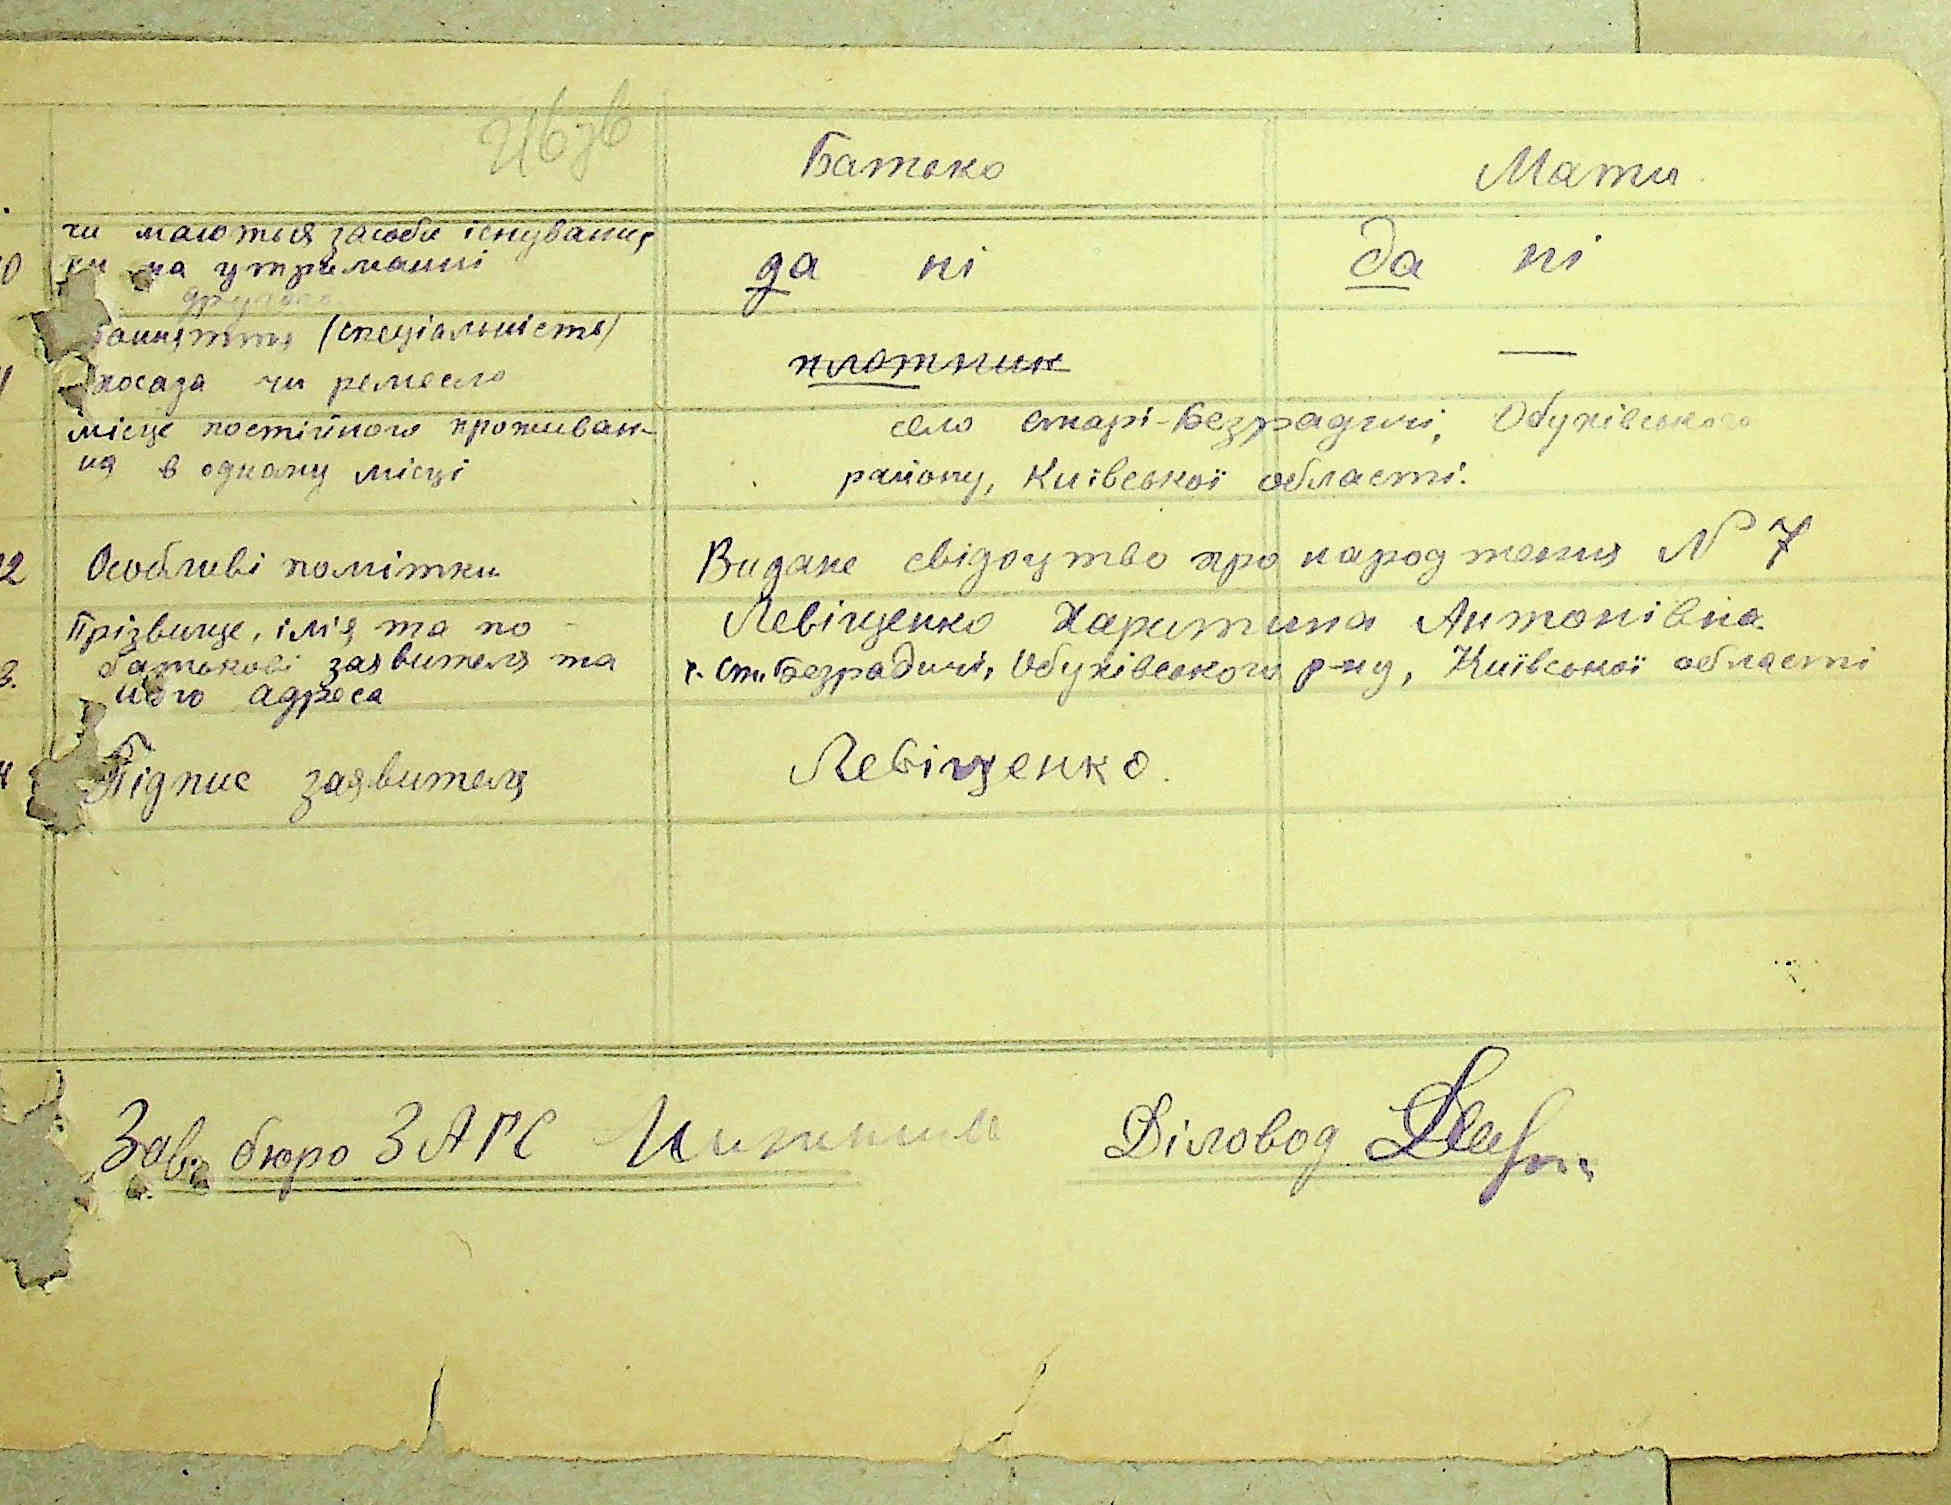 Батько Мати
чи маються засоби існування
10 чи на утриманні да ні да ні
другого
Заняття (спеціальність)
посада чи ремесло плотник —
місце постійного проживан- село Старі-Безрадичі, Обухівського
ня в одному місці району, Київської області.
12 Особливі помітки Видане свідоцтво про народження N 7
Прізвище, імія та по- Левіщенко Харитина Антонівна
3. батькові заявителя та с. Ст. Безрадичі, Обухівського р-ну, Київської області
його адреса
Підпис заявителя Левіщенко.
Зав. бюро ЗАГС Діловод